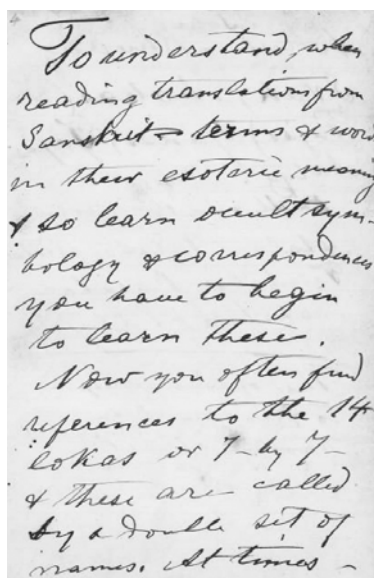 To understand, when
reading translations from
Sanskrit terms & word
in their esoteric meaning
& so learn occult sym-
bology & correspondences
you have to begin
to learn these.
Now you often find
references to the 14
lokas or 7 by 7
& these are called
by a double set of
names. At times –